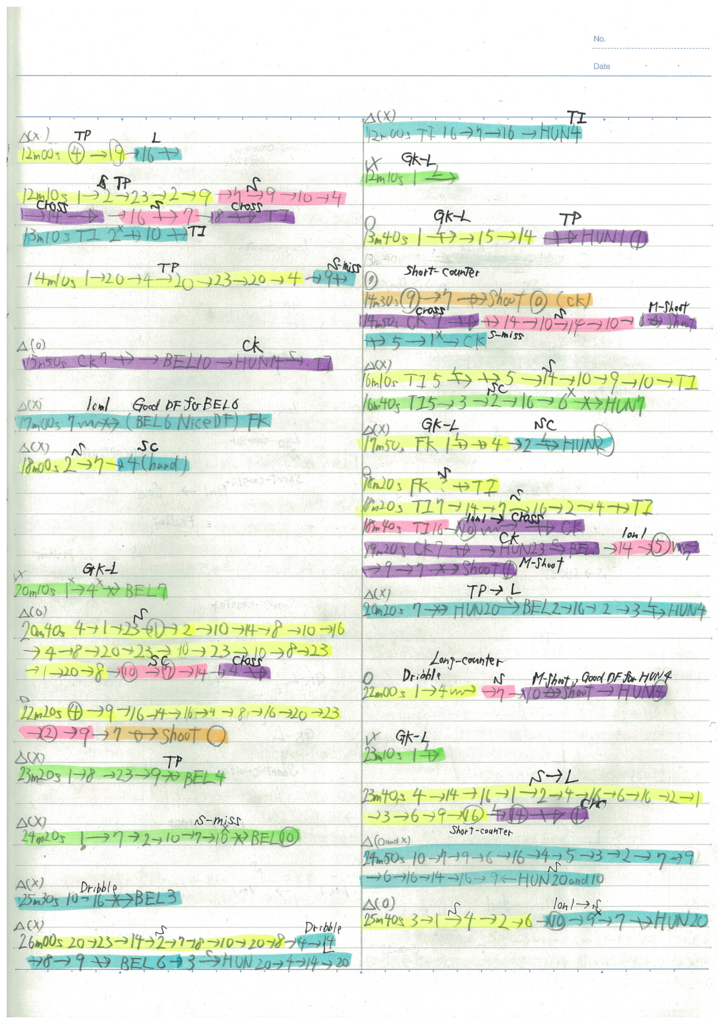 No.
Date
△(X) TP L
12m00s ④→⑨→16→
TP S
12m10s 1→2→23→2→9→7→9→10→4
cross S cross
→14→→16→7→18→→TI
13m10s TI 2→10→TI
TP S-miss
14m10s 1→20→4→20→23→20→4→9→
△(O) CK
15m50s CK7→→BEL10→HUN14→TI
△(X) 1on1 Good DF for BEL6
17m00s 7→(BEL6 Nice DF) FK
△(X) S SC
18m00s 2→7→4(hand)
GK-L
20m10s 1→4→BEL7
△(O) S
20m40s 4→1→23→①→2→10→14→8→10→16
→4→18→20→23→10→23→10→8→23
SC cross
→1→20→8→⑩→⑦→14→4→
22m20s ④→9→16→4→16→4→8→16→20→23
→②→9→7→Shoot
△(X) TP
23m20s 1→8→23→9→BEL4
△(X) S-miss
24m20s 1→7→2→10→7→10→BEL⑩
△(X) Dribble
25m30s 10→16→BEL3
△(X) S Dribble
26m00s 20→23→14→2→7→8→10→20→8→4→14
→8→9→BEL6→3→HUN20→4→14→20
△(X) TI
12m00s TI 16→7→16→HUN4
GK-L
12m10s 1
O GK-L TP
13m40s 1→15→14→HUN1
Short-counter
14m30s ⑨→7→Shoot (CK)
cross S M-Shoot
14m50s CK7→→14→10→14→10→→Shoot
→5→1→CK S-miss
△(X) S
16m10s TI5→→5→14→10→9→10→TI
SC
16m40s TI5→3→2→16→6→HUN7
△(X) GK-L SC
17m50s FK1→→4→2→HUN2
O S
18m20s FK→TI
S
18m20s TI7→14→7→16→2→4→TI
1on1→cross
18m40s TI16→→CK
CK 1on1
19m20s CK7→→HUN23→BEL→14→⑤
→9→7→Shoot M-Shoot
△(X) TP→L
20m20s 7→HUN20→BEL2→16→2→3→HUN4
Long-counter
O Dribble S M-Shoot, Good DF for HUN4
22m00s 1→4→7→10→Shoot→HUN4
GK-L
23m10s 1
S→L
23m40s 4→14→16→1→2→4→16→6→16→2→1
→3→6→9→⑯→⑭→
Short-counter
△(O and X)
24m50s 10→7→9→6→16→4→5→3→2→7→9
→6→16→14→16→9←HUN20and10
△(O) S 1on1→S
25m40s 3→1→4→2→6→⑩→9→7→HUN20